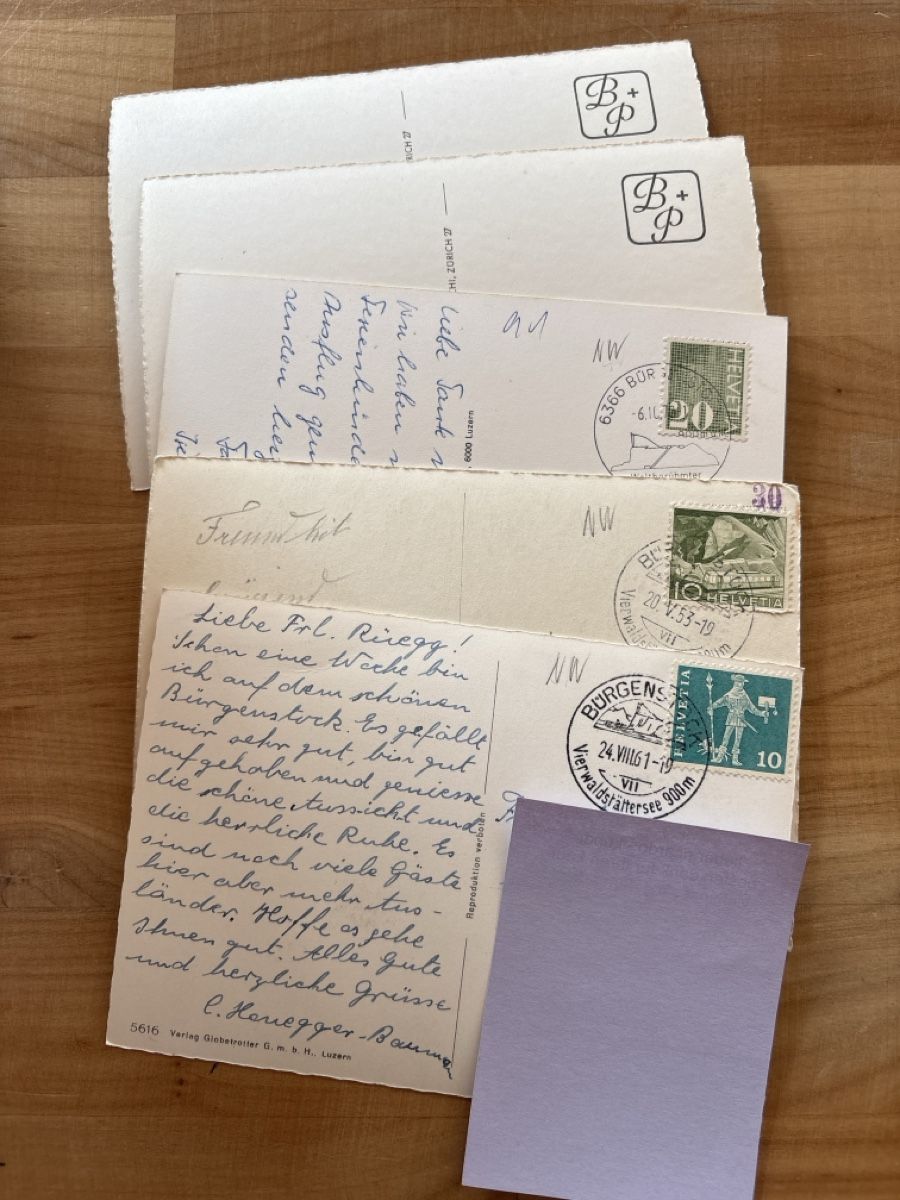 B+P
RICH 27
B+P
CHI, ZÜRICH 27
Liebe Tante
Wir haben
Ausflug
senden
6000 Luzern
NW
6366 BÜR
-6.10.7
Weltberühmter
HELVETIA
20
Freundlich
NW
30
BÜ
20.V.53-19
VII
Vierwaldst
00m
10 HELVETIA
Liebe Frl. Rüegg!
Schon eine Woche bin
ich auf dem schönen
Bürgenstock. Es gefällt
mir sehr gut, bin gut
aufgehoben und geniesse
die schöne Aussicht und
die herrliche Ruhe. Es
sind noch viele Gäste
hier aber mehr Aus-
länder. Hoffe es gehe
Ihnen gut. Alles Gute
und herzliche Grüsse
C. Honegger-Bauman
5616 Verlag Globetrotter G. m. b. H., Luzern
Reproduktion verboten
NW
BÜRGENSTOCK
24.VIII.61-19
VII
Vierwaldstättersee 900m
HELVETIA
10